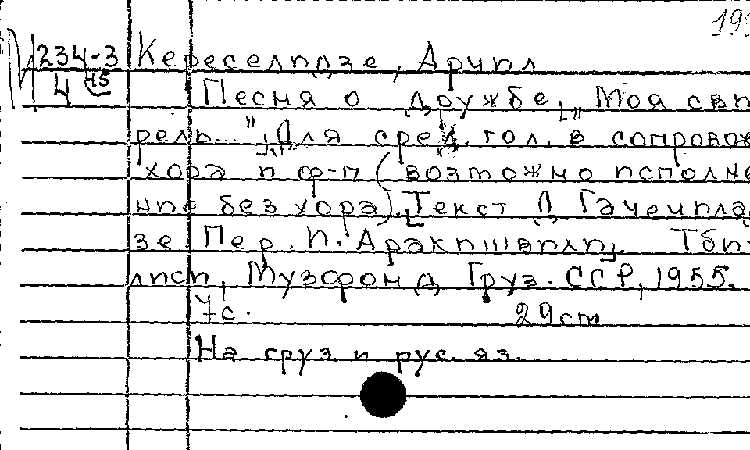 195
М 234-3 Кереселидзе, Арчил
4 45 Песня о дружбе. „Моя сви
рель..." Для сред. гол. в сопровож
хора и ф-п (возможно исполне
ние без хора). Текст Д. Гачечила
зе Пер. П. Аракишвили. Тби-
лиси, Музфонд Груз. ССР, 1955.
7с. 29cm
На груз и рус. яз.